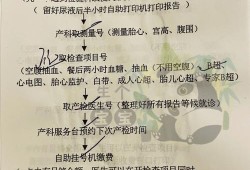 （留好尿液后半小时自助打印机打印报告）
产科取测量号（测量胎心、宫高、腹围）
取检查项目号
（空腹抽血、餐后两小时血糖、抽血（不用空腹）、B超、
心电图、胎心监护、白带、成人心超、胎儿心超、专家B超）
取产检医生号（整理好所有报告等候就诊）
产科服务台预约下次产检时间
自助挂号机缴费